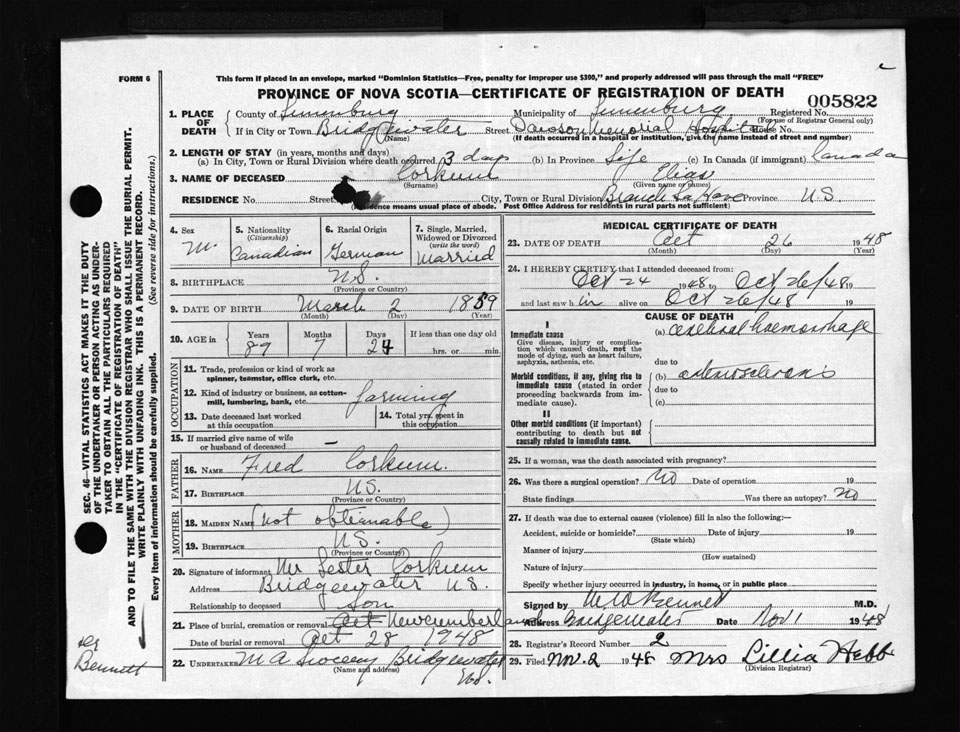 FORM 6
This form if placed in an envelope, marked "Dominion Statistics—Free, penalty for improper use $300," and properly addressed will pass through the mail "FREE"
PROVINCE OF NOVA SCOTIA—CERTIFICATE OF REGISTRATION OF DEATH
005822
1. PLACE OF DEATH County of Lunenburg Municipality of Lunenburg Registered No.
(For use of Registrar General only)
If in City or Town Bridgewater Street Dawson Memorial Hospital House No.
(Name) (If death occurred in a hospital or institution, give the name instead of street and number)
2. LENGTH OF STAY (in years, months and days)
(a) In City, Town or Rural Division where death occurred 3 days (b) In Province Life (c) In Canada (if immigrant) Canada
3. NAME OF DECEASED Corkum Elias
(Surname) (Given name or names)
RESIDENCE No. Street City, Town or Rural Division Branch La Have Province N.S.
(Residence means usual place of abode. Post Office Address for residents in rural parts not sufficient)
4. Sex M.
5. Nationality (Citizenship) Canadian
6. Racial Origin German
7. Single, Married, Widowed or Divorced (write the word) Married
8. BIRTHPLACE N.S.
(Province or Country)
9. DATE OF BIRTH March 2 1859
(Month) (Day)
10. AGE in Years 89 Months 7 Days 24 If less than one day old hrs. or min.
OCCUPATION
11. Trade, profession or kind of work as spinner, teamster, office clerk, etc.
12. Kind of industry or business, as cotton-mill, lumbering, bank, etc. farming
13. Date deceased last worked at this occupation
14. Total yrs. spent in this occupation
15. If married give name of wife or husband of deceased —
FATHER
16. NAME Fred Corkum
17. BIRTHPLACE N.S.
(Province or Country)
MOTHER
18. MAIDEN NAME (not obtainable)
19. BIRTHPLACE N.S.
(Province or Country)
20. Signature of informant Mr Lester Corkum
Address Bridgewater N.S.
Relationship to deceased son
21. Place of burial, cremation or removal Oct Newcumberland
Date of burial or removal Oct 28 1948
22. UNDERTAKER M A Bridgewater
(Name and address) N.S.
MEDICAL CERTIFICATE OF DEATH
23. DATE OF DEATH Oct 26 1948
(Month) (Day)
24. I HEREBY CERTIFY that I attended deceased from:
Oct 24 1948 to Oct 26/48 19
and last saw h im alive on Oct 26/48 19
CAUSE OF DEATH
I
Immediate cause
Give disease, injury or complication which caused death, not the mode of dying, such as heart failure, asphyxia, asthenia, etc.
(a) cerebral haemorrhage
due to
Morbid conditions, if any, giving rise to immediate cause (stated in order proceeding backwards from immediate cause).
(b) arteriosclerosis
due to
(c)
II
Other morbid conditions (if important) contributing to death but not causally related to immediate cause.
25. If a woman, was the death associated with pregnancy?
26. Was there a surgical operation? no Date of operation 19
State findings Was there an autopsy? no
27. If death was due to external causes (violence) fill in also the following:—
Accident, suicide or homicide? Date of injury 19
(State which)
Manner of injury
(How sustained)
Nature of injury
Specify whether injury occurred in industry, in home, or in public place
Signed by Bennett M.D.
Address Bridgewater Date Nov 1 1948
28. Registrar's Record Number 2
29. Filed Nov. 2 1948 Mrs Lillia Hebb
(Division Registrar)
SEC. 46—VITAL STATISTICS ACT MAKES IT THE DUTY
OF THE UNDERTAKER OR PERSON ACTING AS UNDER-
TAKER TO OBTAIN ALL THE PARTICULARS REQUIRED
IN THE "CERTIFICATE OF REGISTRATION OF DEATH"
AND TO FILE THE SAME WITH THE DIVISION REGISTRAR WHO SHALL ISSUE THE BURIAL PERMIT.
WRITE PLAINLY WITH UNFADING INK. THIS IS A PERMANENT RECORD.
Every item of information should be carefully supplied. (See reverse side for instructions.)
Dr
Bennett